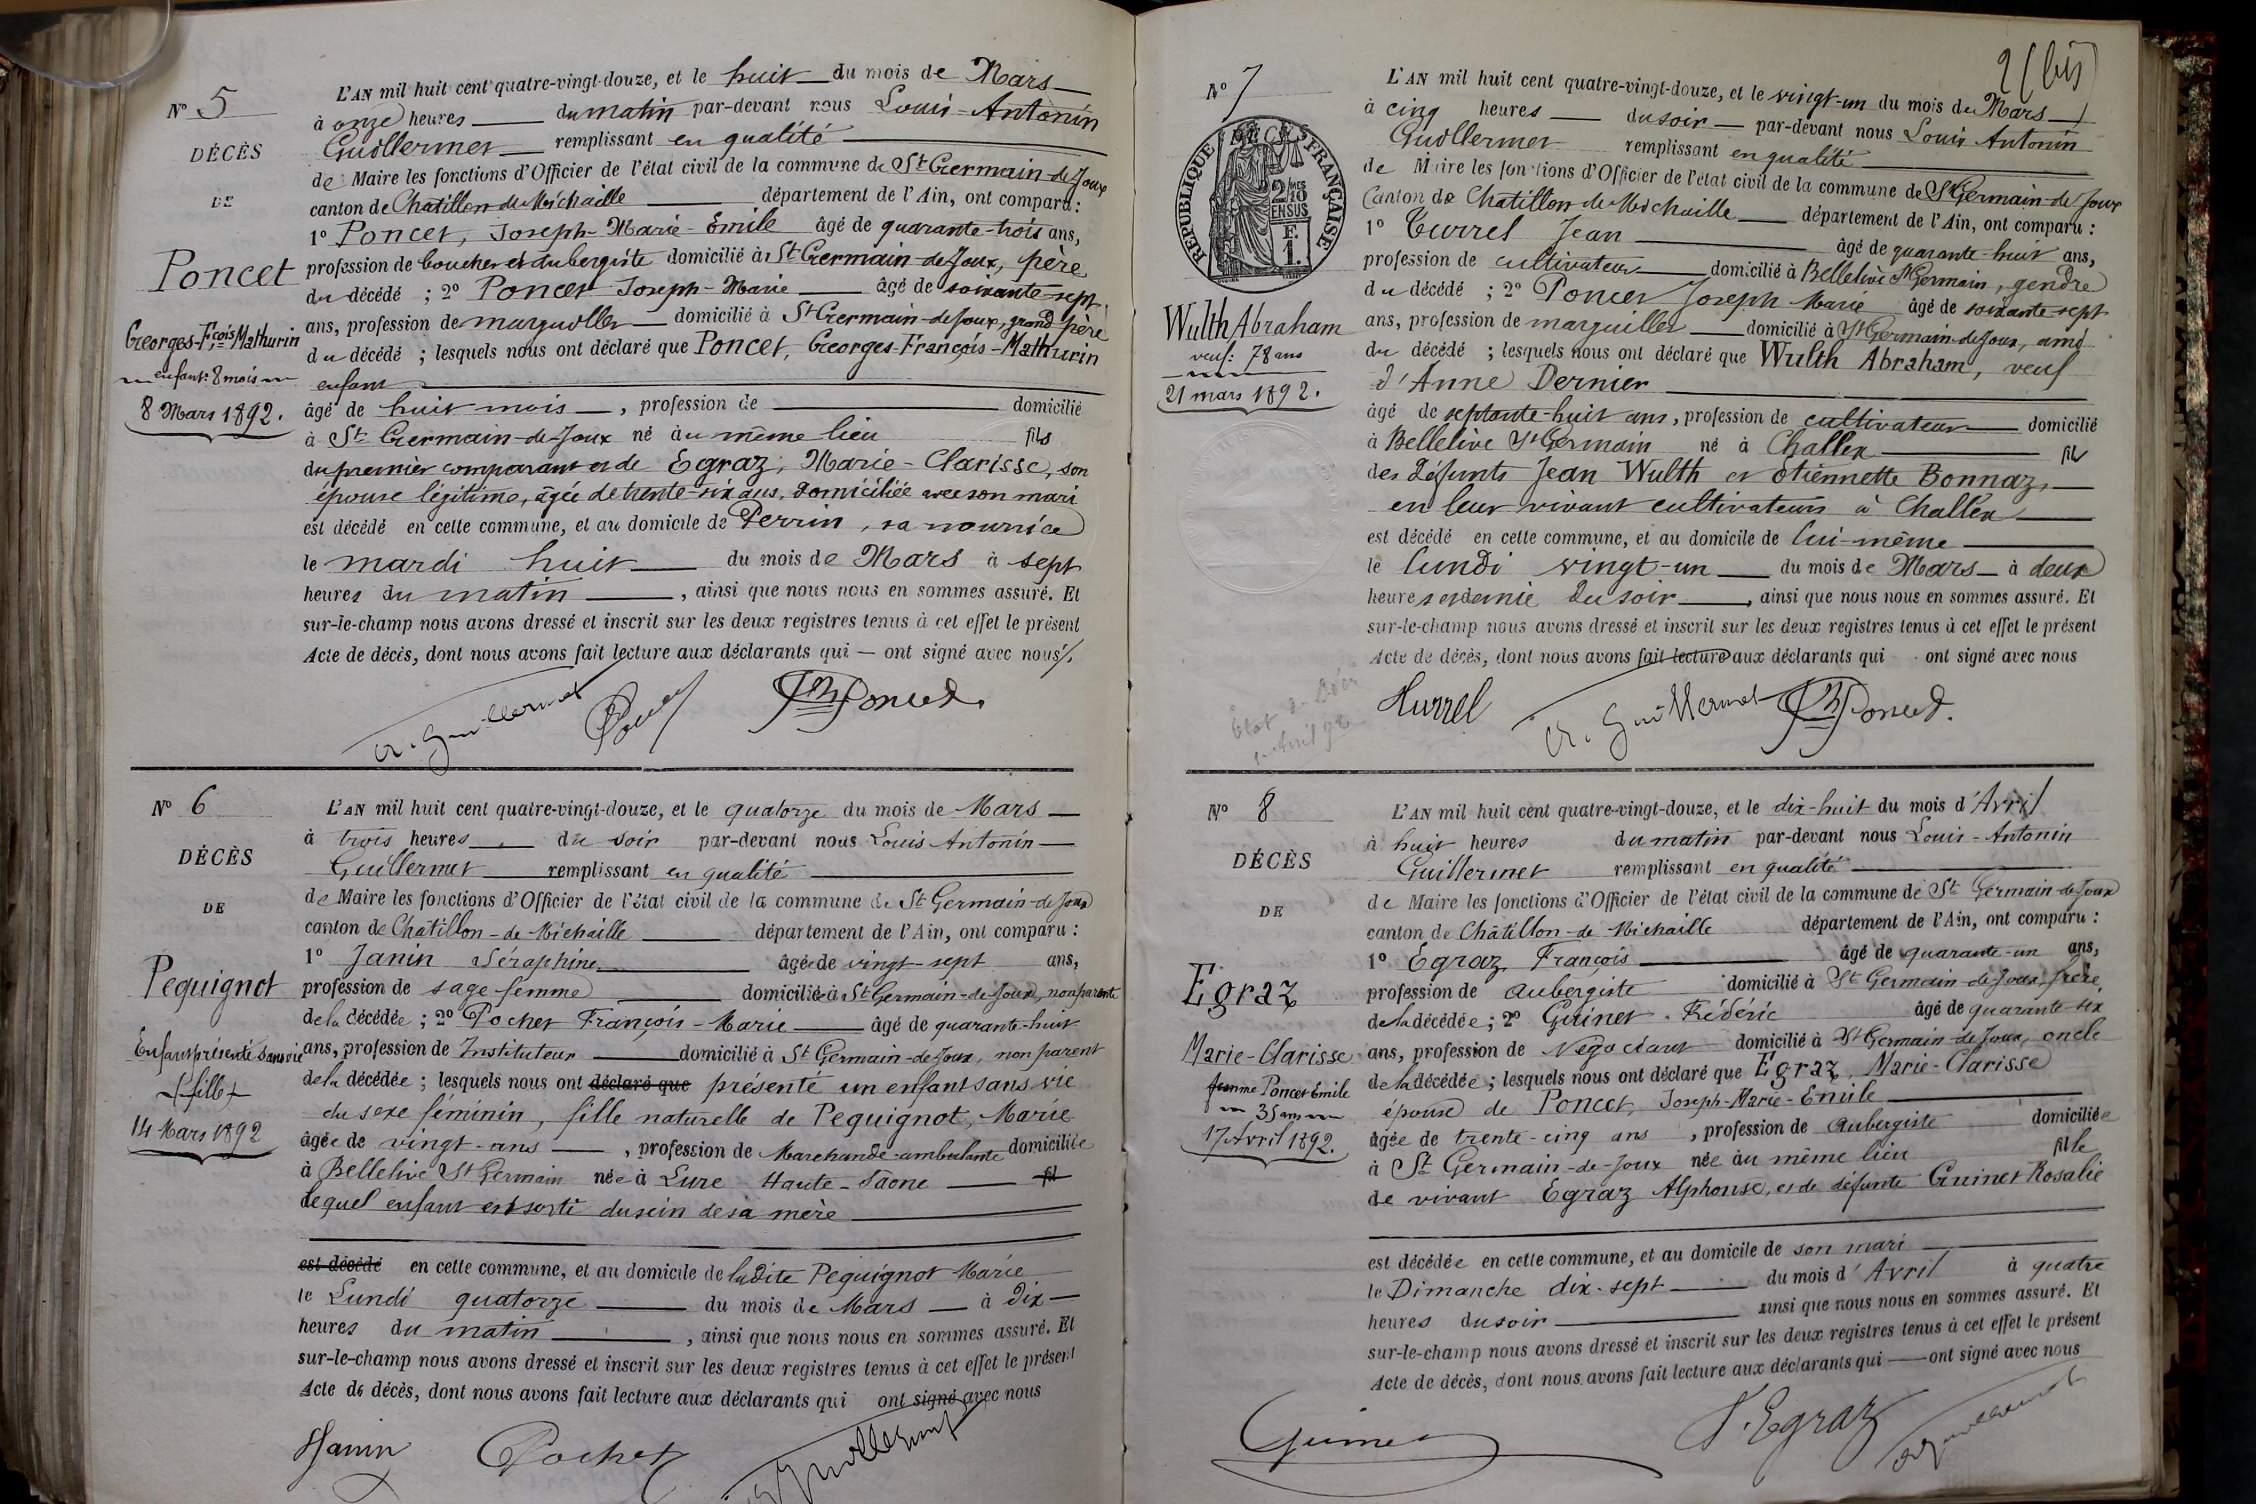 N° 5
DÉCÈS
DE
Poncet
Georges-Fçois Mathurin
enfant: 8 mois
8 Mars 1892.
L'AN mil huit cent quatre-vingt-douze, et le huit du mois de Mars
à onze heures du matin par-devant nous Louis-Antonin
Guillermet remplissant en qualité
de Maire les fonctions d'Officier de l'état civil de la commune de St Germain-de-Joux
canton de Chatillon de Michaille département de l'Ain, ont comparu :
1° Poncet, Joseph-Marie-Emile âgé de quarante-trois ans,
profession de boucher et aubergiste domicilié à St Germain-de-Joux, père
du décédé ; 2° Poncet Joseph-Marie âgé de soixante-sept
ans, profession de marguiller domicilié à St Germain-de-Joux, grand-père
du décédé ; lesquels nous ont déclaré que Poncet, Georges-François-Mathurin
enfant
âgé de huit mois, profession de domicilié
à St Germain-de-Joux né au même lieu fils
du premier comparant et de Egraz, Marie-Clarisse, son
épouse légitime, âgée de trente-six ans, domiciliée avec son mari
est décédé en cette commune, et au domicile de Perrin, sa nourrice
le mardi huit du mois de Mars à sept
heures du matin, ainsi que nous nous en sommes assuré. Et
sur-le-champ nous avons dressé et inscrit sur les deux registres tenus à cet effet le présent
Acte de décès, dont nous avons fait lecture aux déclarants qui — ont signé avec nous
A. Guillermet Poncet JM Poncet
N° 6
DÉCÈS
DE
Pequignot
Enfant présenté sans vie
fille
14 Mars 1892
L'AN mil huit cent quatre-vingt-douze, et le quatorze du mois de Mars
à trois heures du soir par-devant nous Louis Antonin
Guillermet remplissant en qualité
de Maire les fonctions d'Officier de l'état civil de la commune de St Germain-de-Joux
canton de Châtillon-de-Michaille département de l'Ain, ont comparu :
1° Janin Séraphine âgée de vingt-sept ans,
profession de sage-femme domiciliée à St Germain-de-Joux, non parente
de la décédée ; 2° Pochet François-Marie âgé de quarante-huit
ans, profession de Instituteur domicilié à St Germain-de-Joux, non parent
de la décédée ; lesquels nous ont déclaré que présenté un enfant sans vie
du sexe féminin, fille naturelle de Pequignot, Marie
âgée de vingt-ans, profession de Marchande-ambulante domiciliée
à Bellelive St Germain née à Lure Haute-Saone fil
lequel enfant est sorti du sein de sa mère
est décédé en cette commune, et au domicile de ladite Pequignot Marie
le Lundi quatorze du mois de Mars à dix
heures du matin, ainsi que nous nous en sommes assuré. Et
sur-le-champ nous avons dressé et inscrit sur les deux registres tenus à cet effet le présent
Acte de décès, dont nous avons fait lecture aux déclarants qui ont signé avec nous
SJanin Pochet A. Guillermet
2 (bis)
N° 7
RÉPUBLIQUE FRANÇAISE
2/10 MES
EN SUS
F.
1.
Wulth Abraham
veuf: 78 ans
21 mars 1892.
L'AN mil huit cent quatre-vingt-douze, et le vingt-un du mois de Mars
à cinq heures du soir par-devant nous Louis Antonin
Guillermet remplissant en qualité
de Maire les fonctions d'Officier de l'état civil de la commune de St Germain-de-Joux
Canton de Chatillon de Michaille département de l'Ain, ont comparu :
1° Turrel Jean âgé de quarante-huit ans,
profession de cultivateur domicilié à Bellelive St Germain, gendre
du décédé ; 2° Poncet Joseph Marie âgé de soixante-sept
ans, profession de marguiller domicilié à St Germain-de-Joux, ami
du décédé ; lesquels nous ont déclaré que Wulth Abraham, veuf
d'Anne Dernier
âgé de septante-huit ans, profession de cultivateur domicilié
à Bellelive St Germain né à Challex fils
des défunts Jean Wulth et Etiennette Bonnaz,
en leur vivant cultivateurs à Challex
est décédé en cette commune, et au domicile de lui-même
le lundi vingt-un du mois de Mars à deux
heures et demie du soir, ainsi que nous nous en sommes assuré. Et
sur-le-champ nous avons dressé et inscrit sur les deux registres tenus à cet effet le présent
Acte de décès, dont nous avons fait lecture aux déclarants qui ont signé avec nous
Turrel A. Guillermet JM Poncet.
N° 8
DÉCÈS
DE
Egraz
Marie-Clarisse
femme Poncet Emile
35 ans
17 Avril 1892.
L'AN mil huit cent quatre-vingt-douze, et le dix-huit du mois d'Avril
à huit heures du matin par-devant nous Louis-Antonin
Guillermet remplissant en qualité
de Maire les fonctions d'Officier de l'état civil de la commune de St Germain-de-Joux
canton de Châtillon-de-Michaille département de l'Ain, ont comparu :
1° Egraz, François âgé de quarante-un ans,
profession de aubergiste domicilié à St Germain-de-Joux, frère
de la décédée ; 2° Guinet Frédéric âgé de quarante-six
ans, profession de Négociant domicilié à St Germain-de-Joux, oncle
de la décédée ; lesquels nous ont déclaré que Egraz, Marie-Clarisse
épouse de Poncet, Joseph-Marie-Emile
âgée de trente-cinq ans, profession de Aubergiste domiciliée
à St Germain-de-Joux née au même lieu fille
de vivant Egraz Alphonse, et de défunte Guinet Rosalie
est décédée en cette commune, et au domicile de son mari
le Dimanche dix-sept du mois d'Avril à quatre
heures du soir ainsi que nous nous en sommes assuré. Et
sur-le-champ nous avons dressé et inscrit sur les deux registres tenus à cet effet le présent
Acte de décès, dont nous avons fait lecture aux déclarants qui — ont signé avec nous
Guinet F. Egraz A. Guillermet